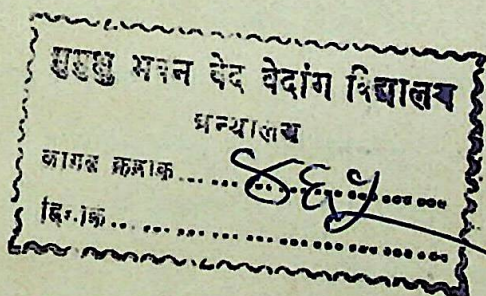 मुमुक्षु भवन वेद वेदांग विद्यालय
ग्रन्थालय
आगत क्रमांक......................
दिनांक........................................